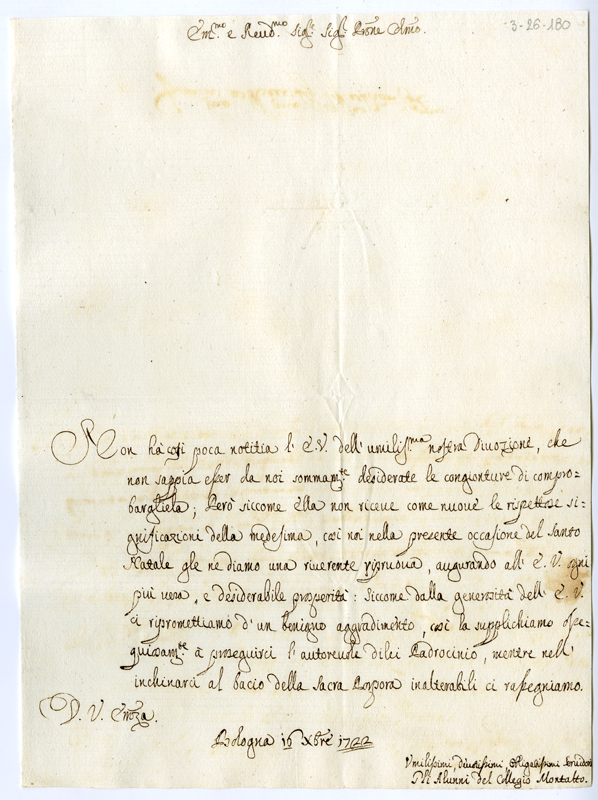 3-26-180
Em.mo e Reud.mo Sig.r Sig.r Prone Colmo.
Non hà così poca notitia l' E.V. dell' umiliss.ma nostra Divozione, che
non sappia esser da noi sommam.te desiderate le congionture di compro-
bargliela; Però siccome ella non riceve come nuove le rispettose si-
gnificazioni della medesima, così noi nella presente occasione del Santo
Natale gle ne diamo una riverente ripruova, augurando all' E. V. ogni
più vera, e desiderabile prosperità: Siccome dalla generosità dell' E. V.
ci ripromettiamo d' un benigno aggradimento, così la supplichiamo osse-
quiosam.te à proseguirci l' autorevole di lei Padrocinio, mentre nell'
inchinarci al bacio della Sacra Porpora inalterabili ci rassegniamo.
D. V. Emza.
Bologna 16 Xbre 1722
Umilissimi Divotissimi, Obligatissimi Servidori
Gli Alunni del Collegio Montalto.